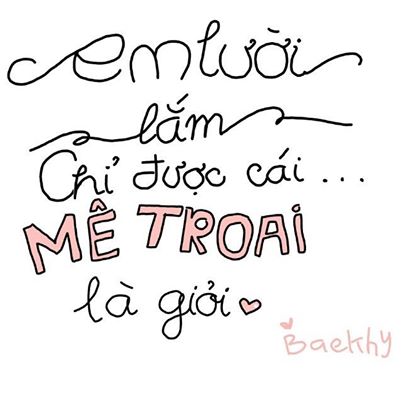 em lười
lắm
Chỉ được cái ...
MÊ TROAI
là giỏi
Baekhy